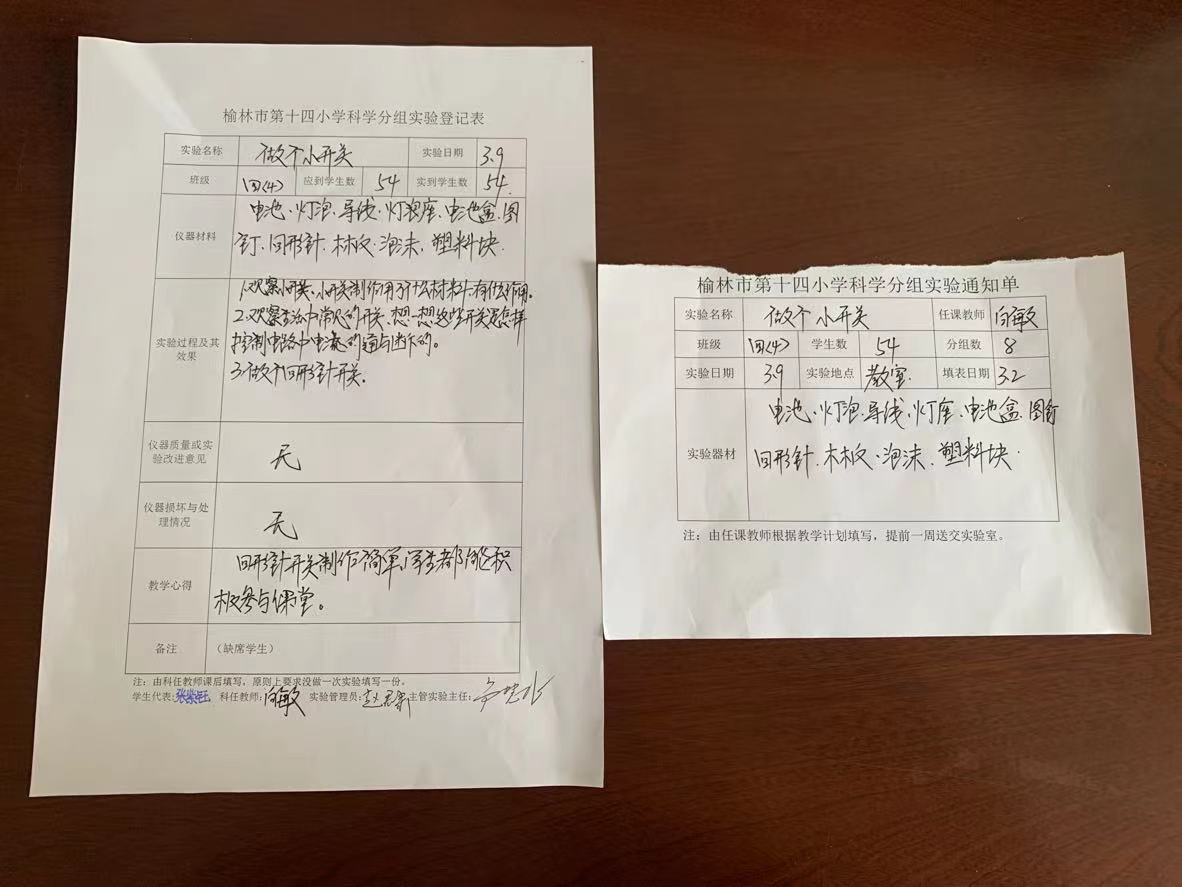 榆林市第十四小学科学分组实验登记表
实验名称 做个小开关 实验日期 3.9
班级 四(4) 应到学生数 54 实到学生数 54.
仪器材料
电池、灯泡、导线、灯泡座、电池盒、图
钉、回形针、木板、泡沫、塑料块.
实验过程及其
效果
1.观察小开关、小开关制作用了什么材料、有什么作用.
2.观察生活中常见的开关,想一想这些开关是怎样
控制电路中电流的通与断的。
3.做个回形针开关.
仪器质量或实
验改进意见
无
仪器损坏与处
理情况
无
教学心得
回形针开关制作简单,学生都能积
极参与课堂。
备注 (缺席学生)
注:由科任教师课后填写,原则上要求没做一次实验填写一份。
学生代表: 科任教师:白敏 实验管理员: 主管实验主任:
榆林市第十四小学科学分组实验通知单
实验名称 做个小开关 任课教师 白敏
班级 四(4) 学生数 54 分组数 8
实验日期 3.9 实验地点 教室. 填表日期 3.2
实验器材
电池、灯泡、导线、灯座、电池盒、图钉
回形针、木板、泡沫、塑料块.
注:由任课教师根据教学计划填写,提前一周送交实验室。